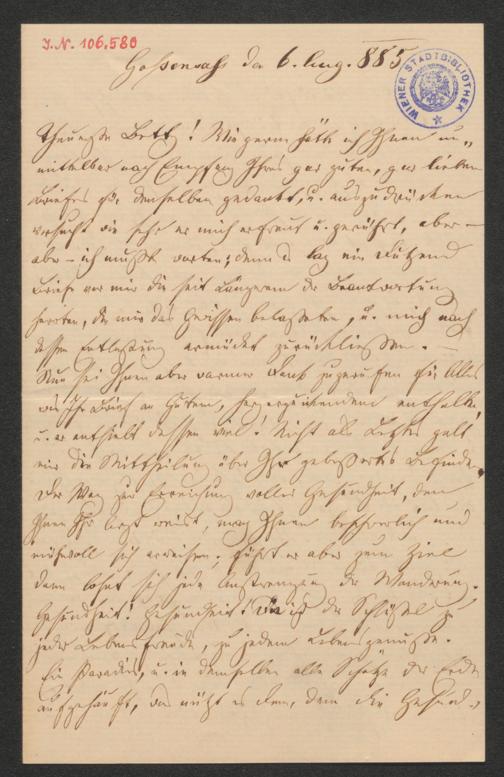 J.N. 106.580
WIENER STADTBIBLIOTHEK
Gossensaß den 6. Aug. 885
Theuerste Betty! Wie gern hätte ich Ihnen un„
mittelbar nach Empfang Ihres gar guten, gar lieben
Briefes für denselben gedankt, u. auszudrücken
versucht wie sehr er mich erfreut u. gerührt, aber –
aber – ich mußte warten; denn es lag ein Dutzend
Briefe vor mir die seit Längerem der Beantwortung
harrten, die mir das Gewissen belasteten, u. mich nach
dessen Entlastung ermüdet zurückließen. –
Nun sei Ihnen aber warmer Dank zugerufen für Alles
was Ihr Brief an Gutem, herzerquickendem enthält,
u. er enthielt dessen viel! Nicht als Letztes galt
mir die Mittheilung über Ihr gebessertes Befinden.
Der Weg zur Erreichung voller Gesundheit, den
Ihnen Ihr Arzt weist, mag Ihnen beschwerlich und
mühevoll sich erweisen; führt er aber zum Ziel
dann lohnt sich jede Anstrengung der Wanderung.
Gesundheit! Gesundheit! Sie ist der Schlüssel zu
jeder Lebensfreude, zu jedem Lebensgenusse.
Ein Paradies, u. in demselben alle Schätze der Erde
aufgehäuft, was nützt es dem, dem die Gesund„